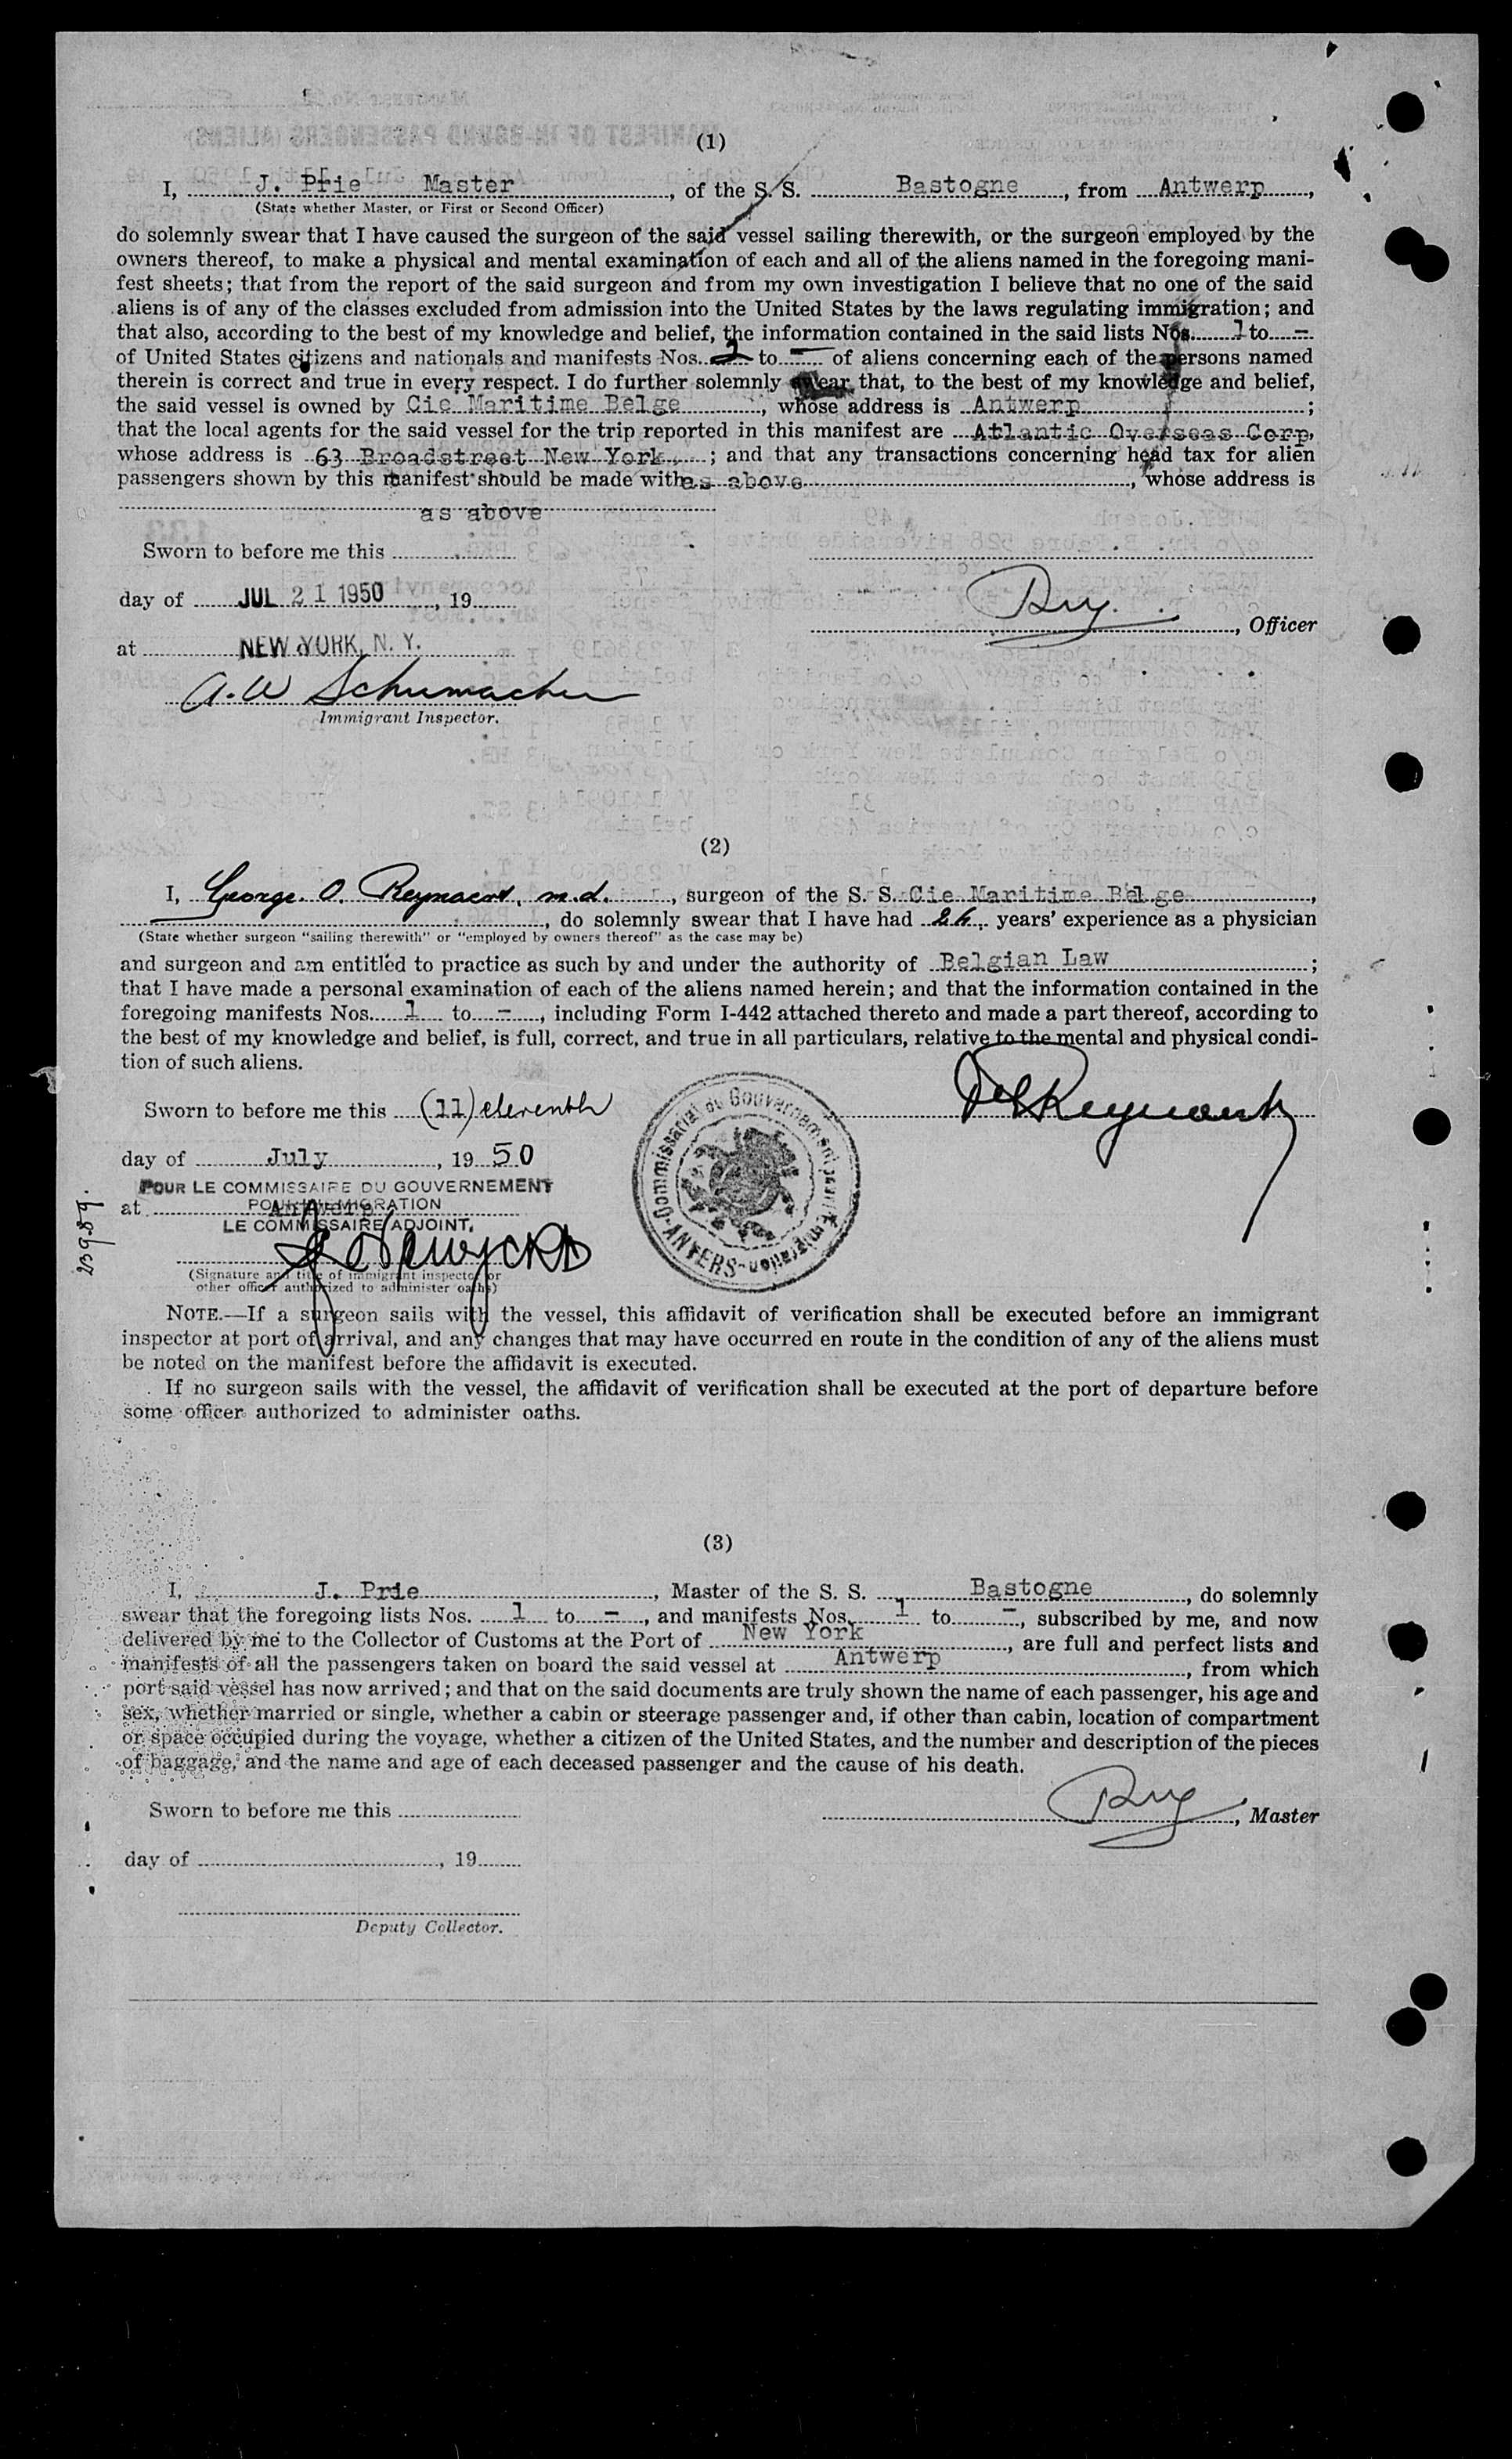 (1)
I, J. Prie Master, of the S. S. Bastogne, from Antwerp,
(State whether Master, or First or Second Officer)
do solemnly swear that I have caused the surgeon of the said vessel sailing therewith, or the surgeon employed by the
owners thereof, to make a physical and mental examination of each and all of the aliens named in the foregoing mani-
fest sheets; that from the report of the said surgeon and from my own investigation I believe that no one of the said
aliens is of any of the classes excluded from admission into the United States by the laws regulating immigration; and
that also, according to the best of my knowledge and belief, the information contained in the said lists Nos. 1 to -
of United States citizens and nationals and manifests Nos. 2 to - of aliens concerning each of the persons named
therein is correct and true in every respect. I do further solemnly swear that, to the best of my knowledge and belief,
the said vessel is owned by Cie Maritime Belge, whose address is Antwerp;
that the local agents for the said vessel for the trip reported in this manifest are Atlantic Overseas Corp,
whose address is 63 Broadstreet New York; and that any transactions concerning head tax for alien
passengers shown by this manifest should be made with as above, whose address is
as above
Sworn to before me this
day of JUL 21 1950, 19
, Officer
at NEW YORK, N. Y.
A. W Schumacher
Immigrant Inspector.
(2)
I, George O. Reynaert, m.d., surgeon of the S. S. Cie Maritime Belge,
, do solemnly swear that I have had years' experience as a physician
(State whether surgeon "sailing therewith" or "employed by owners thereof" as the case may be)
and surgeon and am entitled to practice as such by and under the authority of Belgian Law;
that I have made a personal examination of each of the aliens named herein; and that the information contained in the
foregoing manifests Nos. 1 to -, including Form I-442 attached thereto and made a part thereof, according to
the best of my knowledge and belief, is full, correct, and true in all particulars, relative to the mental and physical condi-
tion of such aliens.
Sworn to before me this (11) eleventh
day of July, 19 50
POUR LE COMMISSAIRE DU GOUVERNEMENT
at Antwerp POUR L'EMIGRATION
LE COMMISSAIRE ADJOINT,
Commissariat du Gouvernement pour l'Emigration - ANVERS -
23989.
(Signature and title of immigrant inspector or
other officer authorized to administer oaths)
NOTE.—If a surgeon sails with the vessel, this affidavit of verification shall be executed before an immigrant
inspector at port of arrival, and any changes that may have occurred en route in the condition of any of the aliens must
be noted on the manifest before the affidavit is executed.
If no surgeon sails with the vessel, the affidavit of verification shall be executed at the port of departure before
some officer authorized to administer oaths.
(3)
I, J. Prie, Master of the S. S. Bastogne, do solemnly
swear that the foregoing lists Nos. 1 to -, and manifests Nos. 1 to -, subscribed by me, and now
delivered by me to the Collector of Customs at the Port of New York, are full and perfect lists and
manifests of all the passengers taken on board the said vessel at Antwerp, from which
port said vessel has now arrived; and that on the said documents are truly shown the name of each passenger, his age and
sex, whether married or single, whether a cabin or steerage passenger and, if other than cabin, location of compartment
or space occupied during the voyage, whether a citizen of the United States, and the number and description of the pieces
of baggage, and the name and age of each deceased passenger and the cause of his death.
Sworn to before me this
, Master
day of , 19
Deputy Collector.